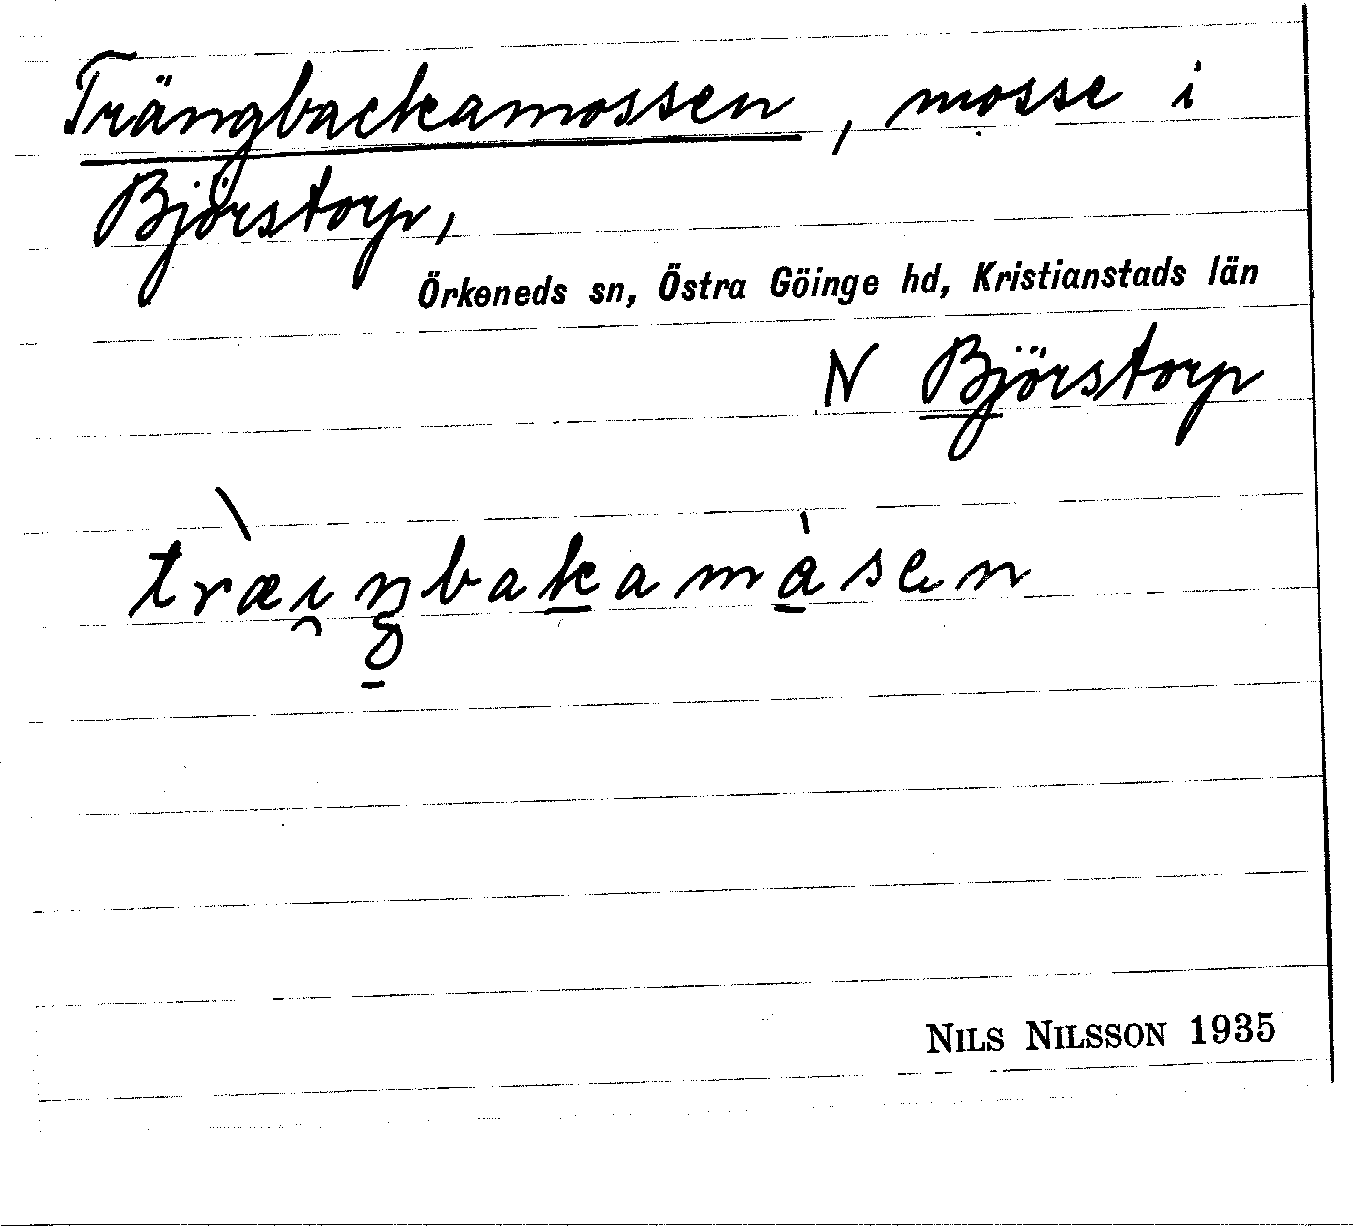 Trängbackamossen, mosse i
Björstorp,
Örkeneds sn, Östra Göinge hd, Kristianstads län
N Björstorp
NILS NILSSON 1935